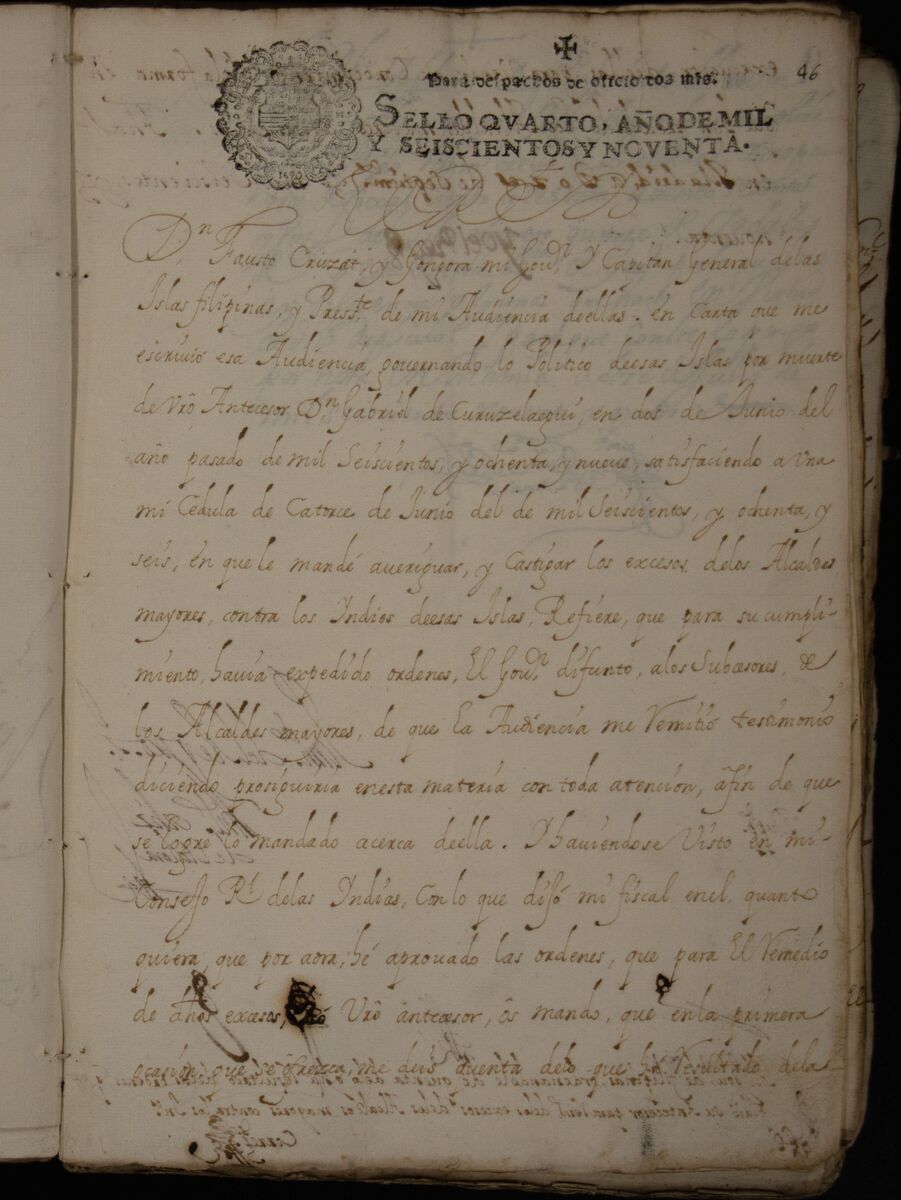 46
Para despachos de oficio dos mrs.
SELLO QVARTO, AÑO DE MIL
Y SEISCIENTOS Y NOVENTA.
1690
Dn. Fausto Cruzat, y Gongora mi Govr. Y Capitan General de las
Islas filipinas, y Presste. de mi Audiencia deellas. en Carta que me
escrivió esa Audiencia, governando lo Politico deesas Islas por muerte
de Vrō Antecesor Dn Gabriel de Curuzelaegui, en dos de Junio del
año pasado de mil Seiscientos, y ochenta, y nueve, satisfaciendo a Una
mi Cedula de Catorce de Junio del de mil Seiscientos, y ochenta, y
seis, en que le mandé averiguar, y Castigar los excesos delos Alcaldes
mayores, contra los Yndios deesas Islas, Refiere, que para su cumpli-
miento, havia expedido ordenes, El Govr. difunto, alos Subcesores, de
los Alcaldes mayores, de que la Audiencia me Remitió testimonio
diciendo prosiguiria enesta materia con toda atención, afin de que
se logre lo mandado acerca deella. Y haviendose Visto en mi
Consejo Rl. delas Yndias, Con lo que dijó mi fiscal enel, quante
quiera, que por aora, hé aprovado las ordenes, que para El Remedio
de dhos excesos, dió Vrō antecesor, ôs mando, que enla primera
ocasion, que se ofrezca, me deis quenta delo que ha resultado dela